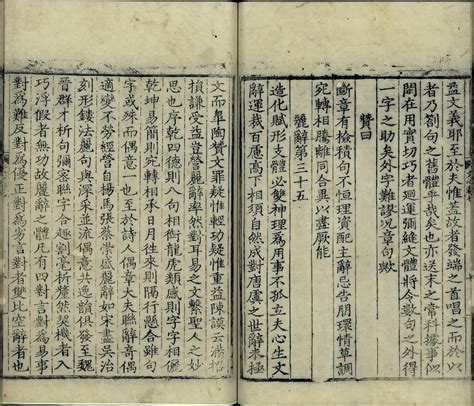 益文義耶至於夫惟蓋故者發端之首唱之而於以
者乃劄句之舊體乎哉矣也亦送末之常科據事似
閒在用實切巧者迴運彌縫文體將令數句之外得
一字之助矣外字難謬况章句歟
贊曰
斷章有檢積句不恒理資配主辭忌告朋環情草調
宛轉相騰離同合異以盡厥能
麗辭第三十五
造化賦形支體必雙神理爲用事不孤立夫心生文
辭運裁百慮高下相須自然成對唐虞之世辭未極
文而皐陶贊文罪疑惟輕功疑惟重益陳謨云滿招
損謙受益豈營麗辭率然對耳易之文繫聖人之妙
思也序乾四德則八句相銜龍虎類感則字字相儷
乾坤易簡則宛轉相承日月往來則隔行懸合雖句
字或殊而偶意一也至於詩人偶章大夫聯辭奇偶
適變不勞經營自揚馬張蔡崇盛麗辭如宋畫吳冶
刻形鏤法麗句與深采並流偶意共逸韻俱發至魏
晉群才析句彌密聯字合趣剖毫析釐然契機者入
巧浮假者無功故麗辭之體凡有四對言對爲易事
對爲難反對爲優正對爲劣言對者雙比空辭者也